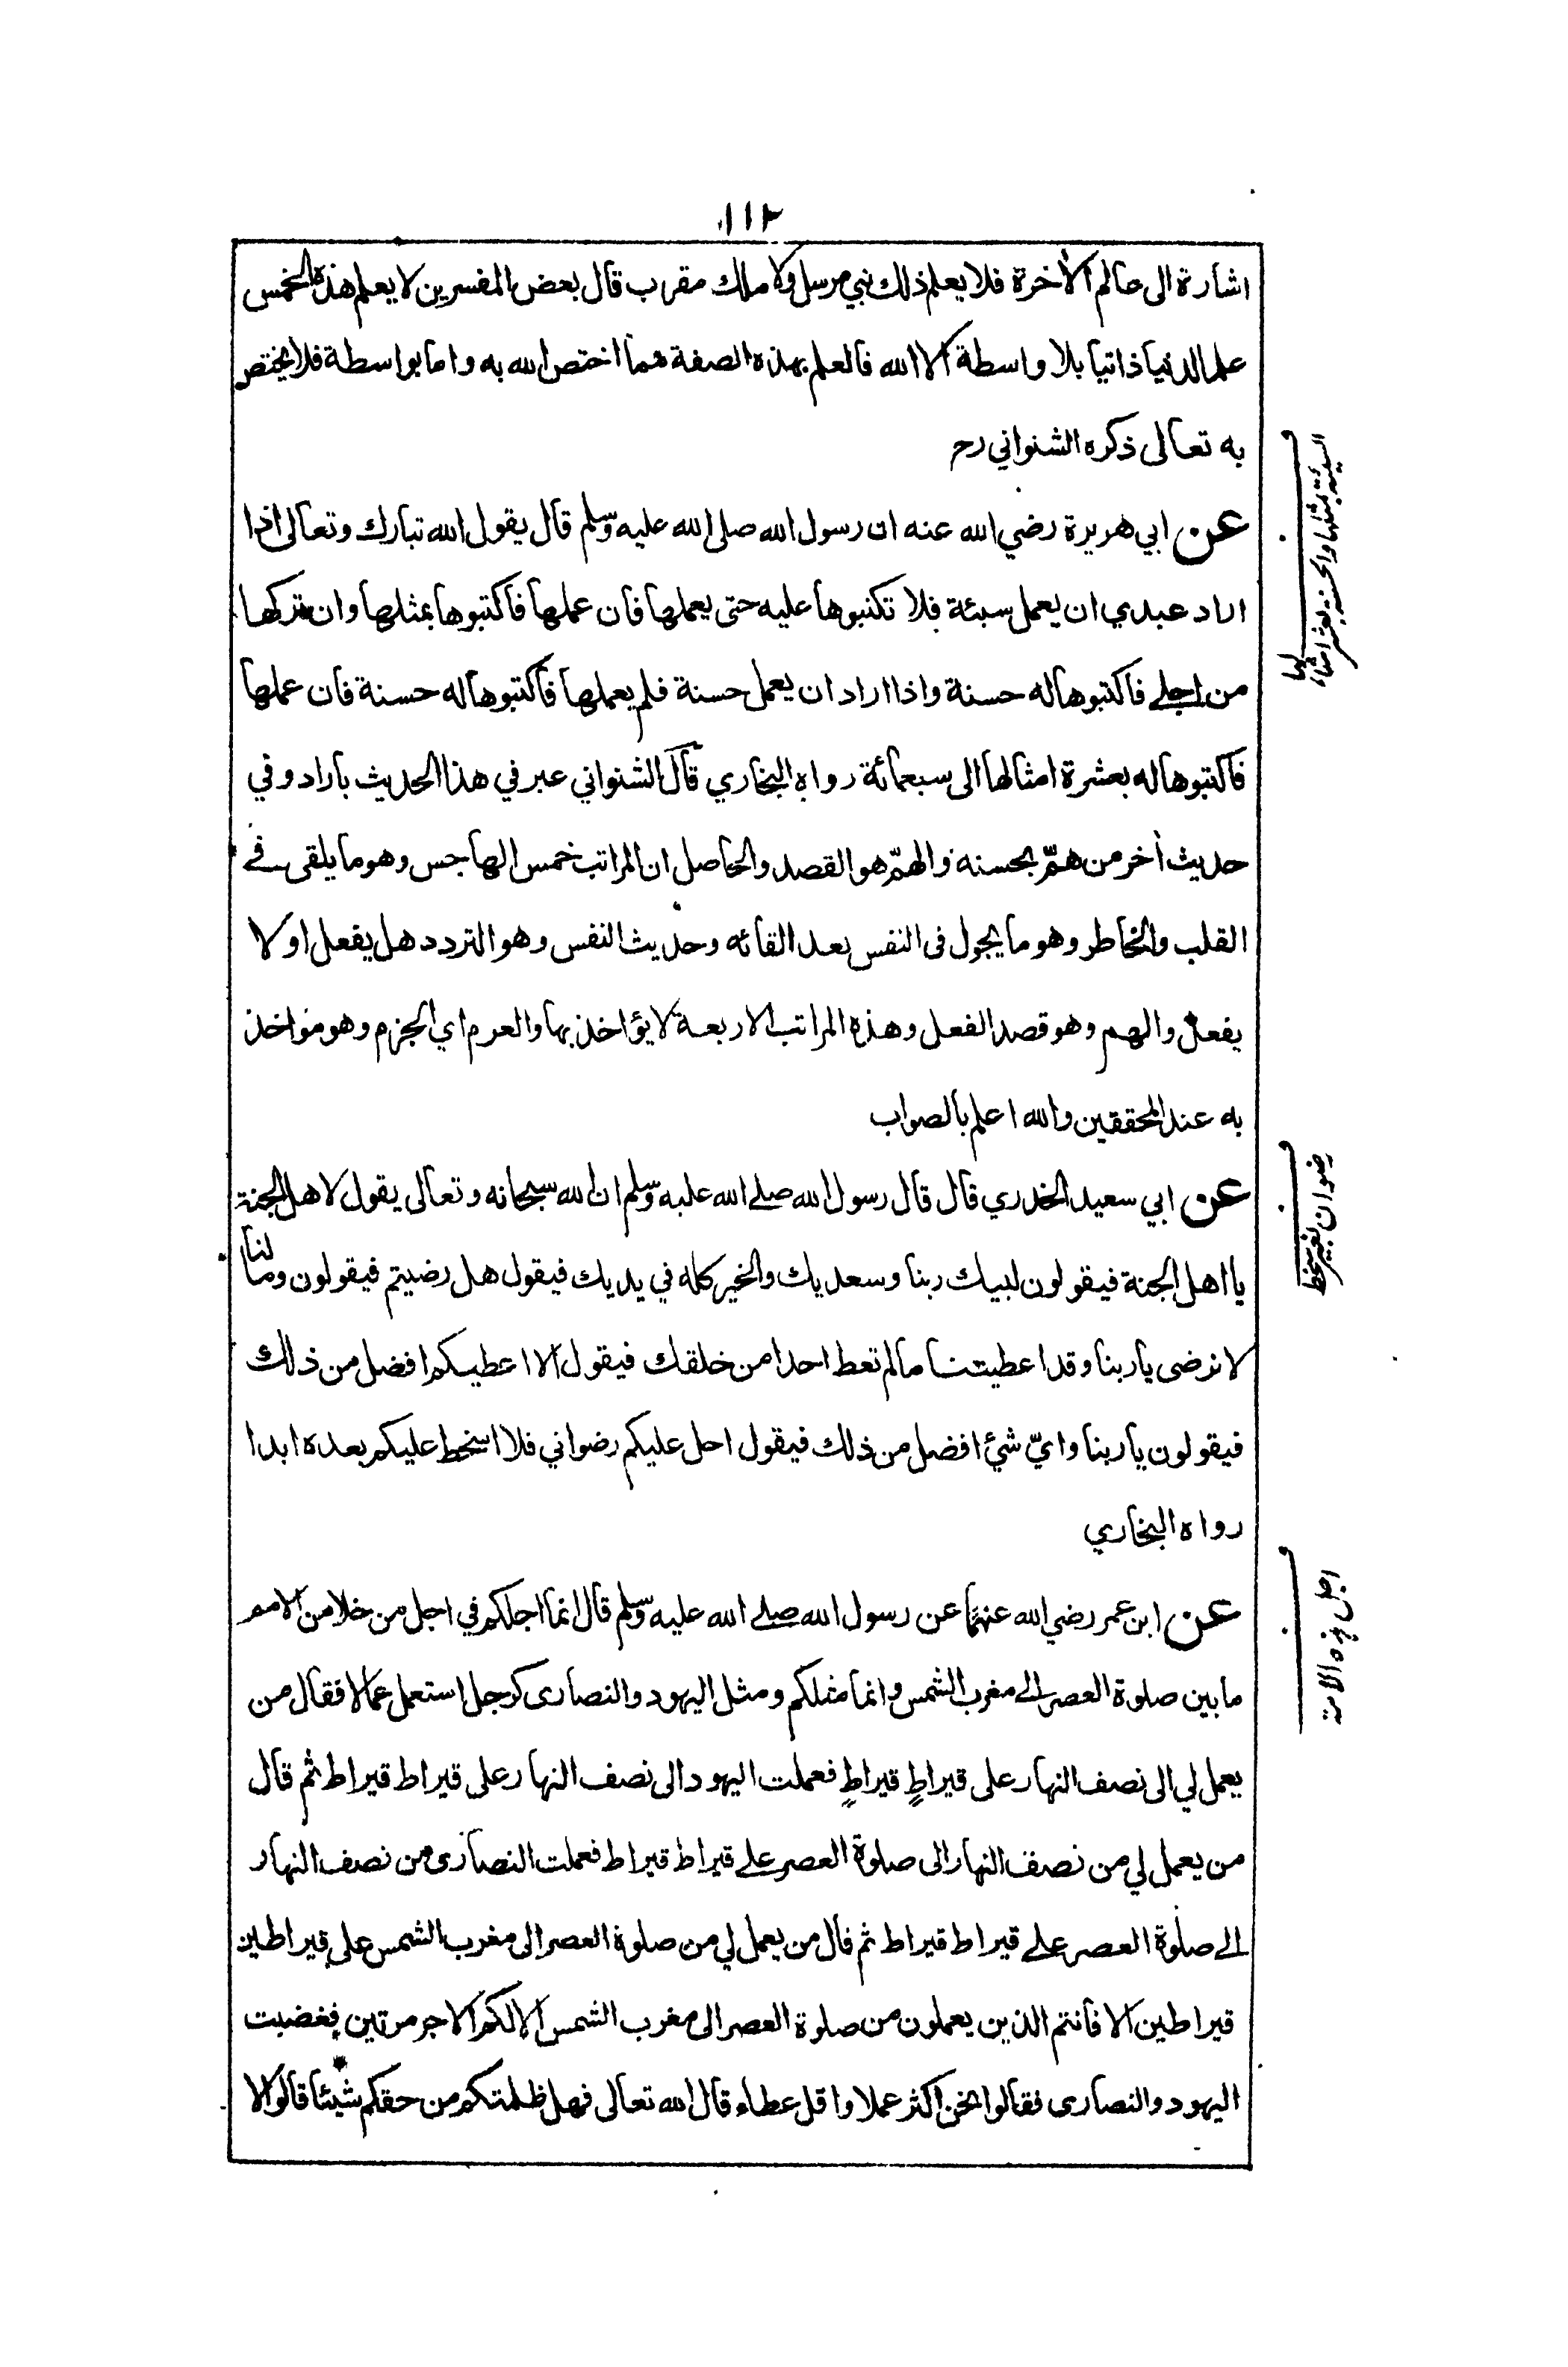 ١١٢
اشارة الى عالم الأخرة فلا يعلم ذلك نبي مرسل ولا ملك مقرب قال بعض المفسرين لا يعلم هذه الخمس
علما لدنيا ذاتيا بلا واسطة الا الله فالعلم بهذه الصفة مما اختص الله به واما بواسطة فلا يختص
به تعالى ذكره الشنواني رح
عن ابي هريرة رضي الله عنه ان رسول الله صلى الله عليه وسلم قال يقول الله تبارك وتعالى اذا
اراد عبدي ان يعمل سيئة فلا تكتبوها عليه حتى يعملها فان عملها فاكتبوها بمثلها وان تركها
من اجلے فاكتبوها له حسنة واذا اراد ان يعمل حسنة فلم يعملها فاكتبوها له حسنة فان عملها
فاكتبوها له بعشرة امثالها الى سبعمائة رواه البخاري قال الشنواني عبر في هذا الحديث باراد وفي
حديث أخر من همّ بحسنه والهمّ هو القصد والحاصل ان المراتب خمس الهاجس وهو ما يلقى فے
القلب والخاطر وهو ما يجول فى النفس بعد القائه وحديث النفس وهو التردد هل يفعل او لا
يفعل والهم وهو قصد الفعل وهذه المراتب الاربعة لا يؤاخذ بها والعزم اي الجزم وهو مؤاخذ
به عند المحققين والله اعلم بالصواب
عن ابي سعيد الخدري قال قال رسول الله صلے الله عليه وسلم ان الله سبحانه وتعالى يقول لاهل الجنة
يا اهل الجنة فيقولون لبيك ربنا وسعديك والخير كله في يديك فيقول هل رضيتم فيقولون وما لنا
لا نرضى يا ربنا وقد اعطيتنا ما لم تعط احدا من خلقك فيقول الا اعطيكم افضل من ذلك
فيقولون يا ربنا وايّ شئ افضل من ذلك فيقول احل عليكم رضواني فلا اسخط عليكم بعده ابدا
رواه البخاري
عن ابن عمر رضي الله عنهما عن رسول الله صلے الله عليه وسلم قال انما اجلكم في اجل من خلا من الامم
ما بين صلوة العصر الے مغرب الشمس وانما مثلكم ومثل اليهود والنصارى كرجل استعمل عمالا فقال من
يعمل لي الى نصف النهار على قيراطٍ قيراطٍ فعملت اليهود الى نصف النهار على قيراط قيراط ثم قال
من يعمل لي من نصف النهار الى صلوة العصر علے قيراط قيراط فعملت النصارى من نصف النهار
الے صلوة العصر علے قيراط قيراط ثم قال من يعمل لي من صلوة العصر الى مغرب الشمس على قيراطين
قيراطين الا فانتم الذين يعملون من صلوة العصر الى مغرب الشمس الا لكم الاجر مرتين فغضبت
اليهود والنصارى فقالوا نحن اكثر عملا واقل عطاء قال الله تعالى فهل ظلمتكم من حقكم شيئا قالوا لا
السيئة بمثلها والحسنة بعشر امثالها
رضوان بغير سخط
اجل هذه الامة